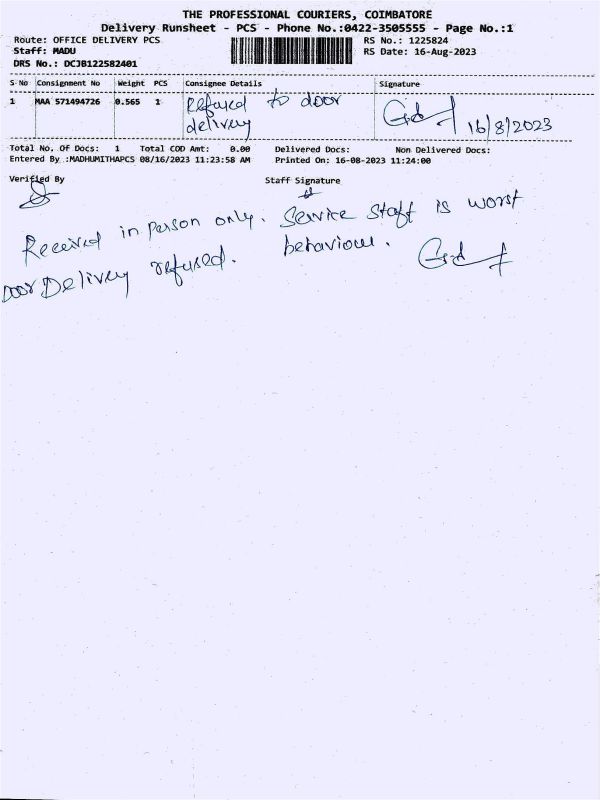 THE PROFESSIONAL COURIERS, COIMBATORE
Delivery Runsheet - PCS - Phone No.:0422-3505555 - Page No.:1
Route: OFFICE DELIVERY PCS RS No.: 1225824
Staff: MADU RS Date: 16-Aug-2023
DRS No.: DCJB122582401
S No Consignment No Weight PCS Consignee Details Signature
1 MAA 571494726 0.565 1 Refused to door
delivery 16/8/2023
Total No. Of Docs: 1 Total COD Amt: 0.00 Delivered Docs: Non Delivered Docs:
Entered By :MADHUMITHAPCS 08/16/2023 11:23:58 AM Printed On: 16-08-2023 11:24:00
Verified By Staff Signature
Received in person only. Service staff is worst
Door Delivery refused. behaviour.